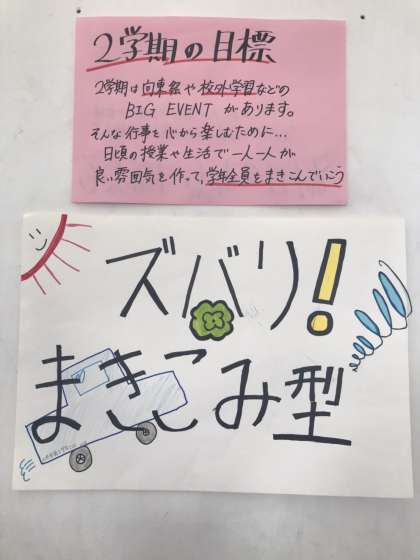 2学期の目標
2学期は向東祭や校外学習などの
BIG EVENT があります。
そんな行事を心から楽しむために…
日頃の授業や生活で一人一人が
良い雰囲気を作って、学年全員をまきこんでいこう
ズバリ!
まきこみ型